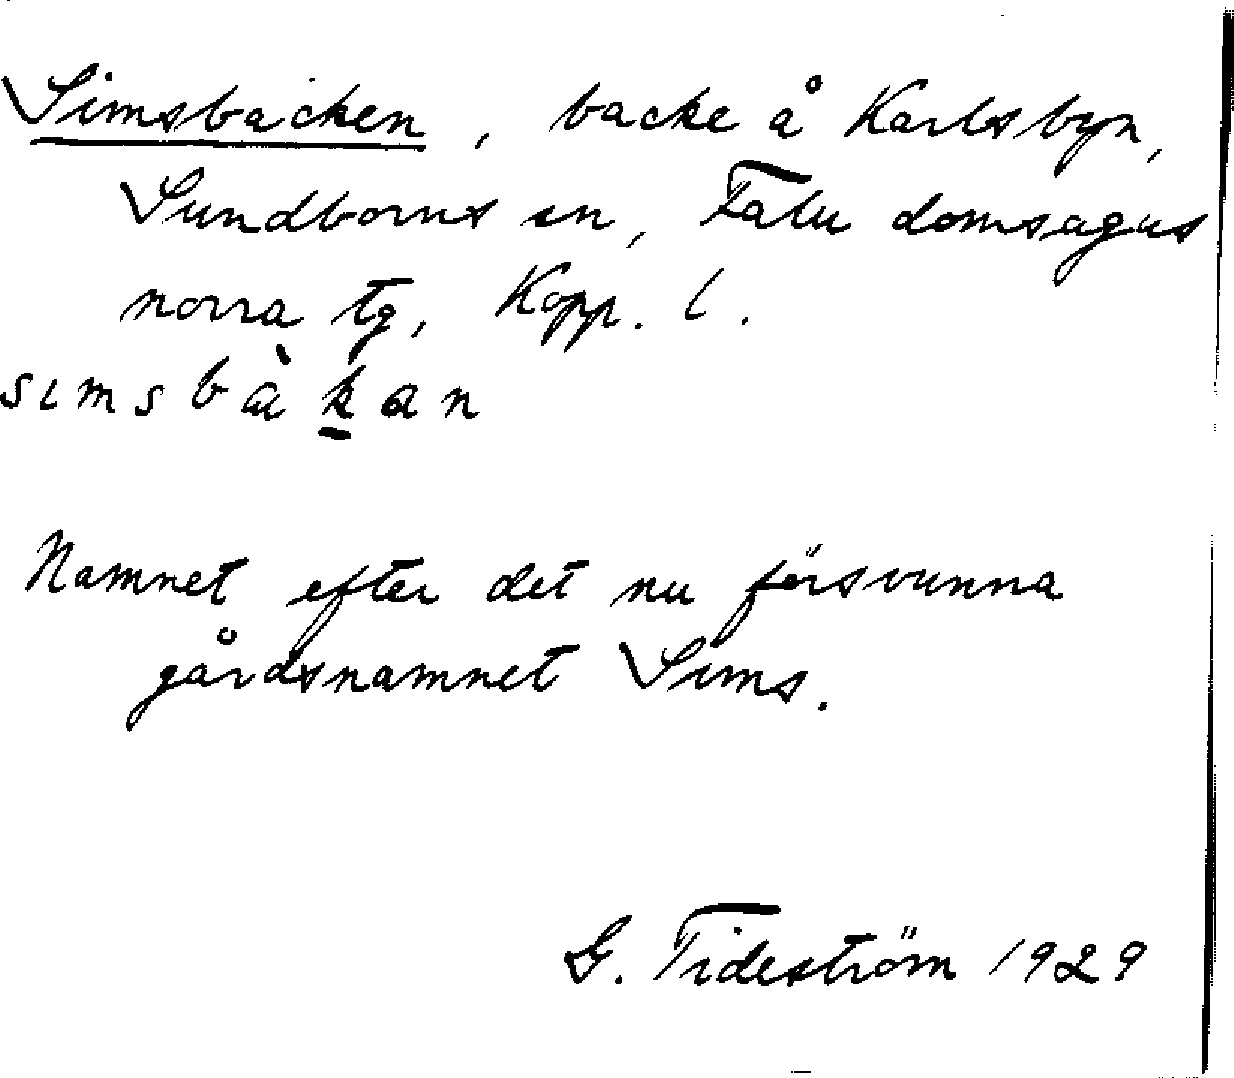 Simsbacken, backe å Karlsbyn,
Sundborns sn, Falu domsagas
norra tg, Kopp. l.
simsbàkan
Namnet efter det nu försvunna
gårdsnamnet Sims.
G. Tideström 1929